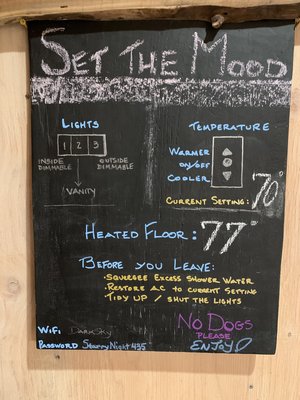 SET THE MOOD
LIGHTS
1 2 3
INSIDE DIMMABLE
OUTSIDE DIMMABLE
VANITY
TEMPERATURE
WARMER
ON/OFF
COOLER
CURRENT SETTING: 70°
HEATED FLOOR: 77°
BEFORE YOU LEAVE:
- SQUEEGEE EXCESS SHOWER WATER
- RESTORE AC TO CURRENT SETTING
- TIDY UP / SHUT THE LIGHTS
NO DOGS
PLEASE
ENJOY!
WIFI DarkSky
PASSWORD StarryNight435